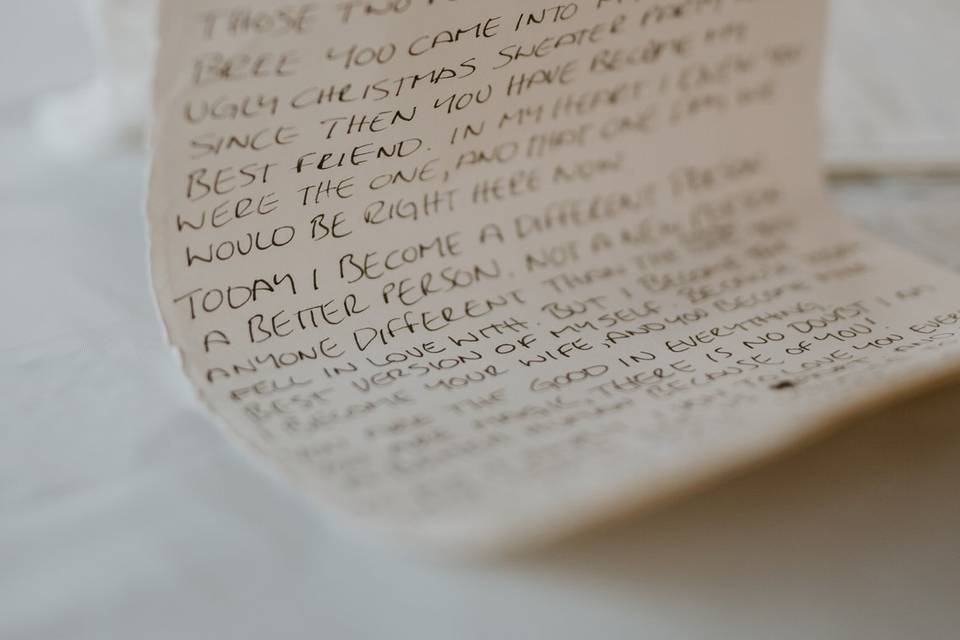 THOSE TWO
BREE YOU CAME INTO
UGLY CHRISTMAS SWEATER PARTY
SINCE THEN YOU HAVE BECOME MY
BEST FRIEND. IN MY HEART I KNEW YOU
WERE THE ONE, AND THAT ONE DAY WE
WOULD BE RIGHT HERE NOW
TODAY I BECOME A DIFFERENT PERSON
A BETTER PERSON. NOT A NEW PERSON
ANYONE DIFFERENT THAN THE
FELL IN LOVE WITH. BUT I BECOME THE
BEST VERSION OF MYSELF. BECAUSE TODAY
I BECOME YOUR WIFE, AND YOU BECOME
YOU ARE THE GOOD IN EVERYTHING
YOU ARE MAGIC, THERE IS NO DOUBT I AM
BECAUSE OF YOU.
TO LOVE YOU EVERY